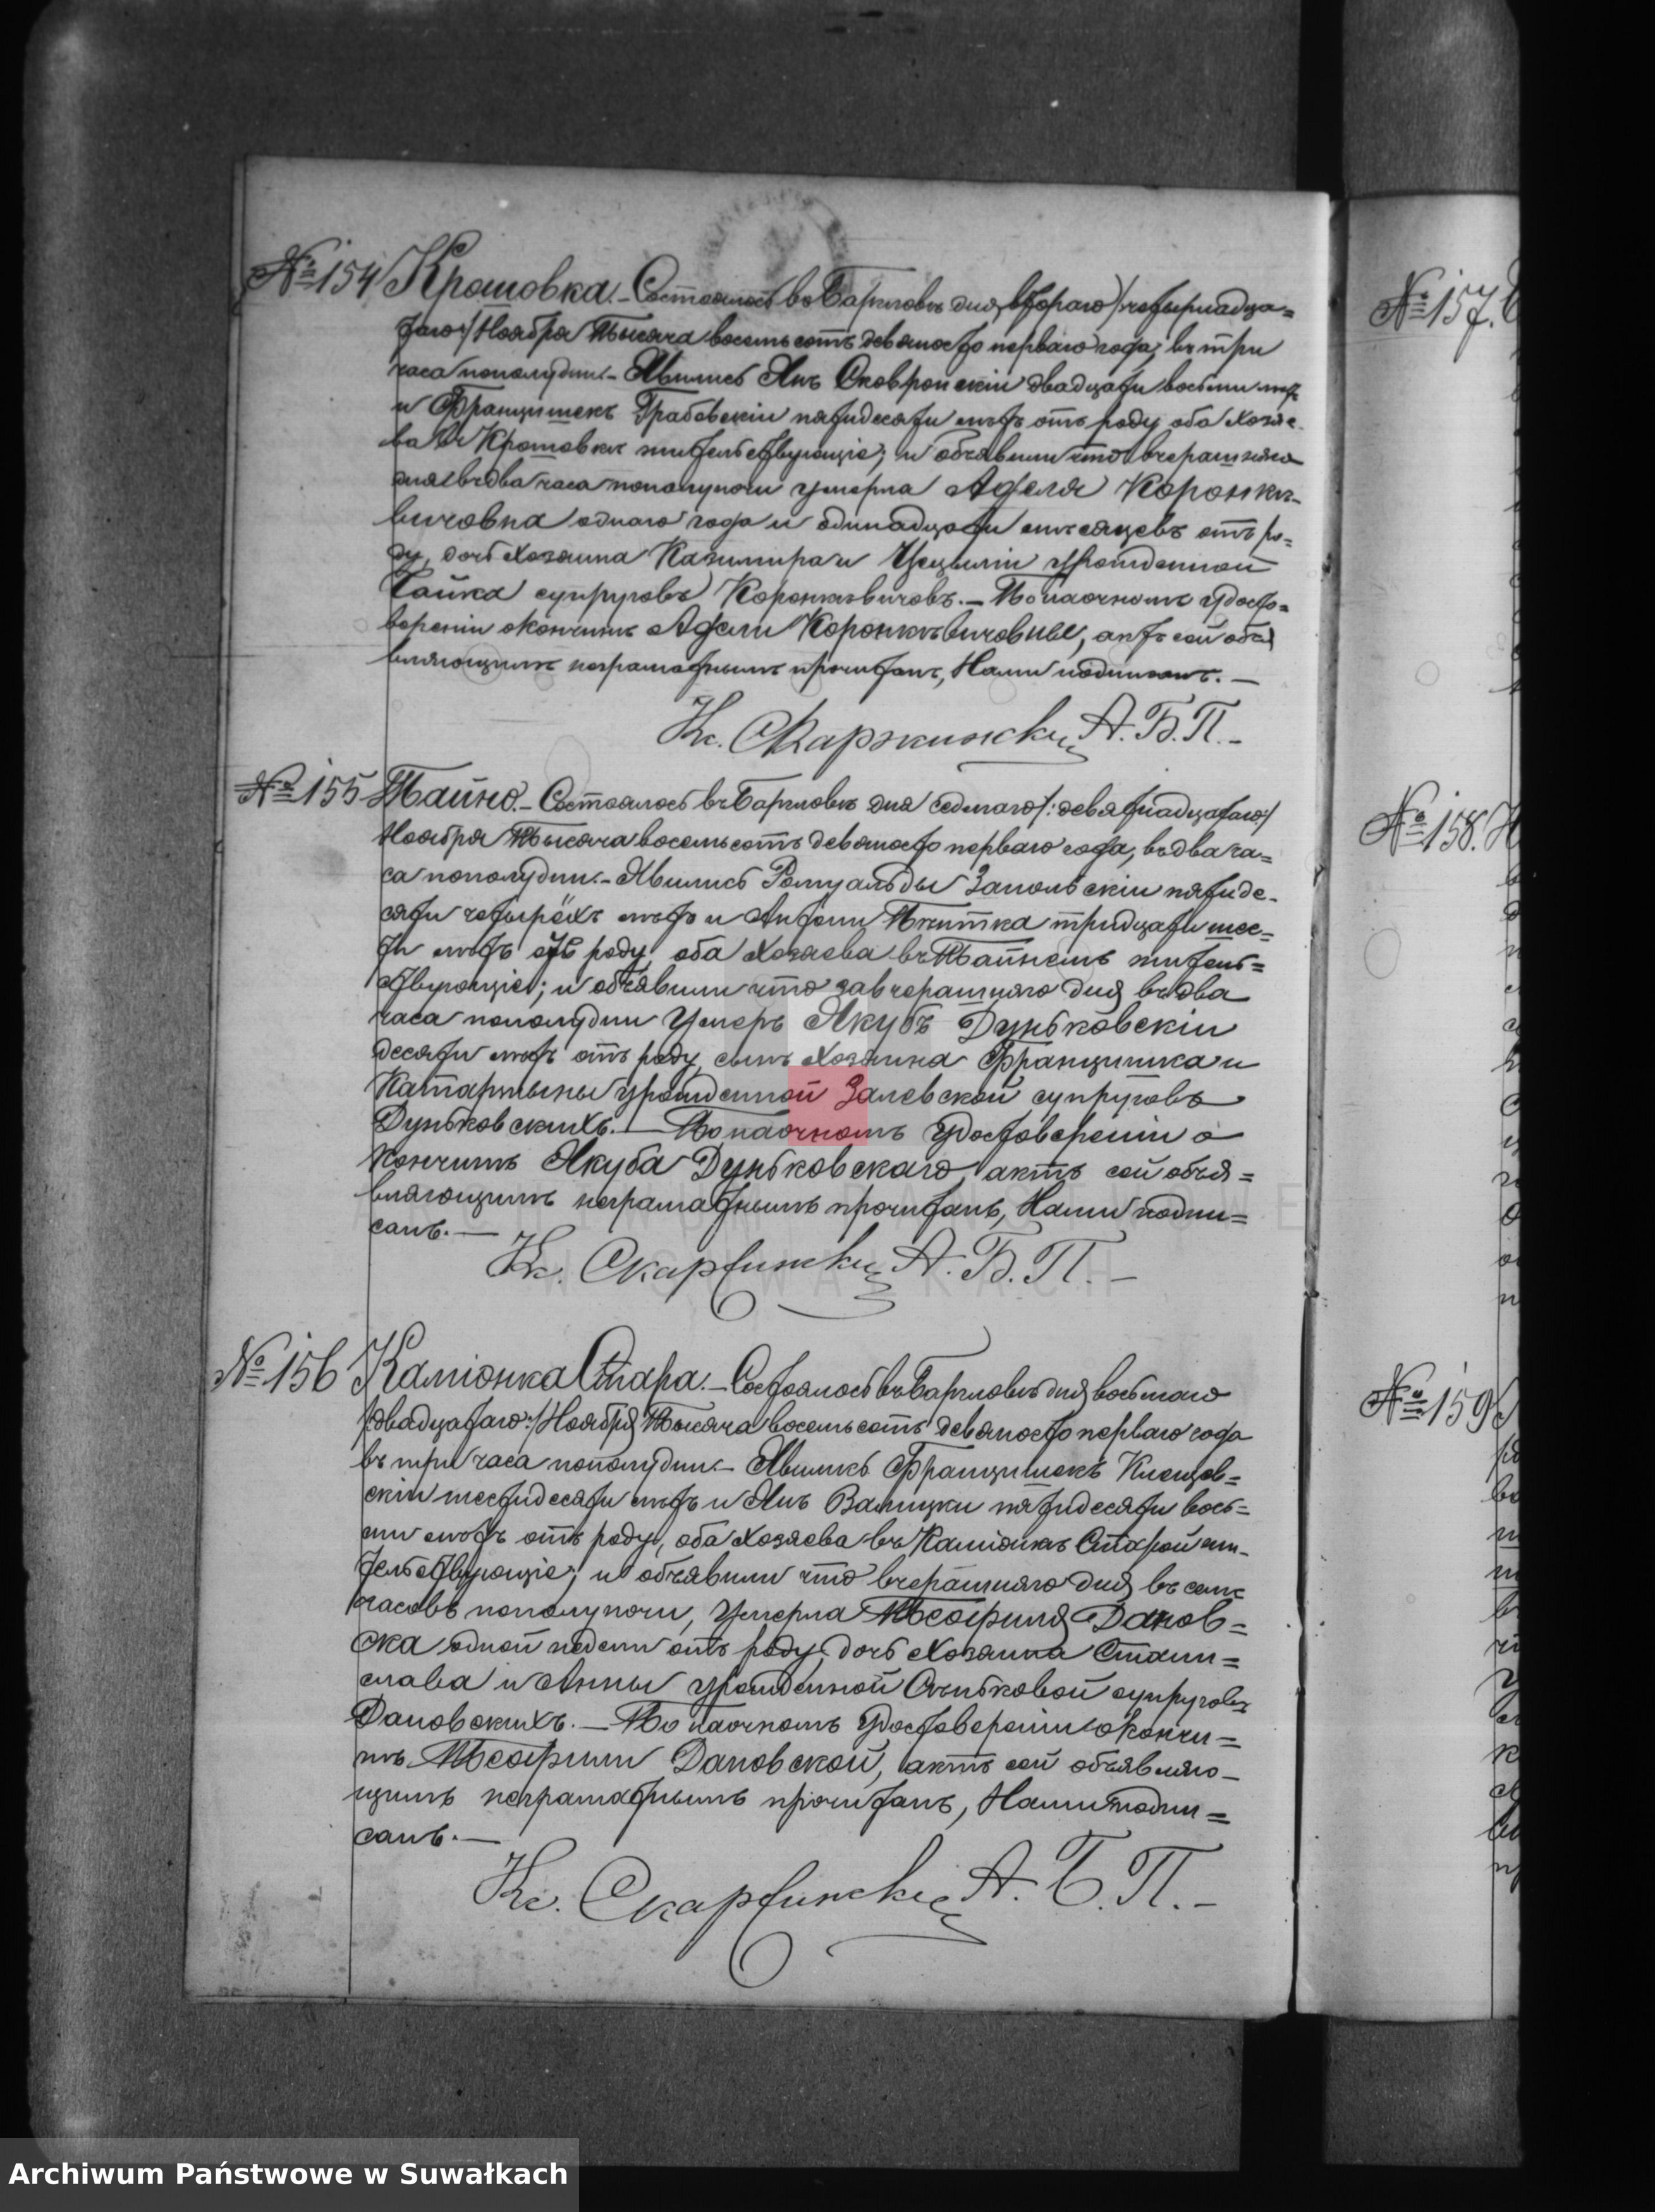 №154 Крошовка.- Состоялось въ Барглове дня втораго /четырнадца=
таго:/ Ноября Тысяча восемьсотъ девяносто перваго года, въ три
часа пополудни.- Явились Янъ Сковронскiи двадцати восьми летъ
и Францишекъ Грабовскiи пятидесяти летъ отъ роду оба Хозяе-
ва въ Крошовке жительствующiе; и объявили что вчерашняго
дня въ два часа пополуночи умерла Аделя Коронке-
вичовна одного года и одинадцати месяцевъ отъ ро=
ду, дочь Хозяина Казимира и Цецылiи урожденной
Чайка супруговъ Коронкевичовъ.- По наочномъ удосто=
веренiи о кончине Адели Коронкевичовны, актъ сей объя
вляющимъ неграмотнымъ прочитанъ, Нами подписанъ.-
Кс. Скаржински А.Б.П.-
№155 Тайно.- Состоялось въ Барглове дня седмаго /:девятнадцатаго:/
Ноября Тысяча восемьсотъ девяносто перваго года, въ два ча=
са пополудни.- Явились Ромуальды Запольскiи пятиде-
сяти четырёхъ летъ и Антони Пкитка тридцати шес=
ти летъ отъ роду, оба Хозяева въ Тайнемъ житель=
ствующiе; и объявили что завчерашняго дня въ два
часа пополудни умеръ Якубъ Дуньковскiи
десяти летъ отъ роду, сынъ Хозяина Францишка и
Катаржыны урожденной Залевской супруговъ
Дуньковскихъ.- По наочномъ удостоверенiи о
кончине Якуба Дуньковскаго, актъ сей объя=
вляющимъ неграмотнымъ прочитанъ, Нами подпи=
санъ.-
Кс. Скаржински А.Б.П.-
№156 Камiонка Стара.- Состоялось въ Барглове дня восьмаго
/двадцатаго:/ Ноября Тысяча восемьсотъ девяносто перваго года
въ три часа пополудни.- Явились Францишекъ Клещов=
скiи шестидесяти летъ и Янъ Валицки пятидесяти вось=
ми летъ отъ роду, оба Хозяева въ Камiонке Старой жи-
тельствующiе; и объявили что вчерашняго дня въ семь
часовъ пополуночи, умерла Теофиля Данов=
ска одной недели отъ роду, дочь Хозяина Стани=
слава и Анны урожденной супруговъ
Дановскихъ.- По наочномъ удостоверенiи о кончи=
не Теофили Дановской, актъ сей объявляю-
щимъ неграмотнымъ прочитанъ, Нами подпи=
санъ.-
Кс. Скаржински А.Б.П.-
№157.
№158.
№159
Archiwum Państwowe w Suwałkach